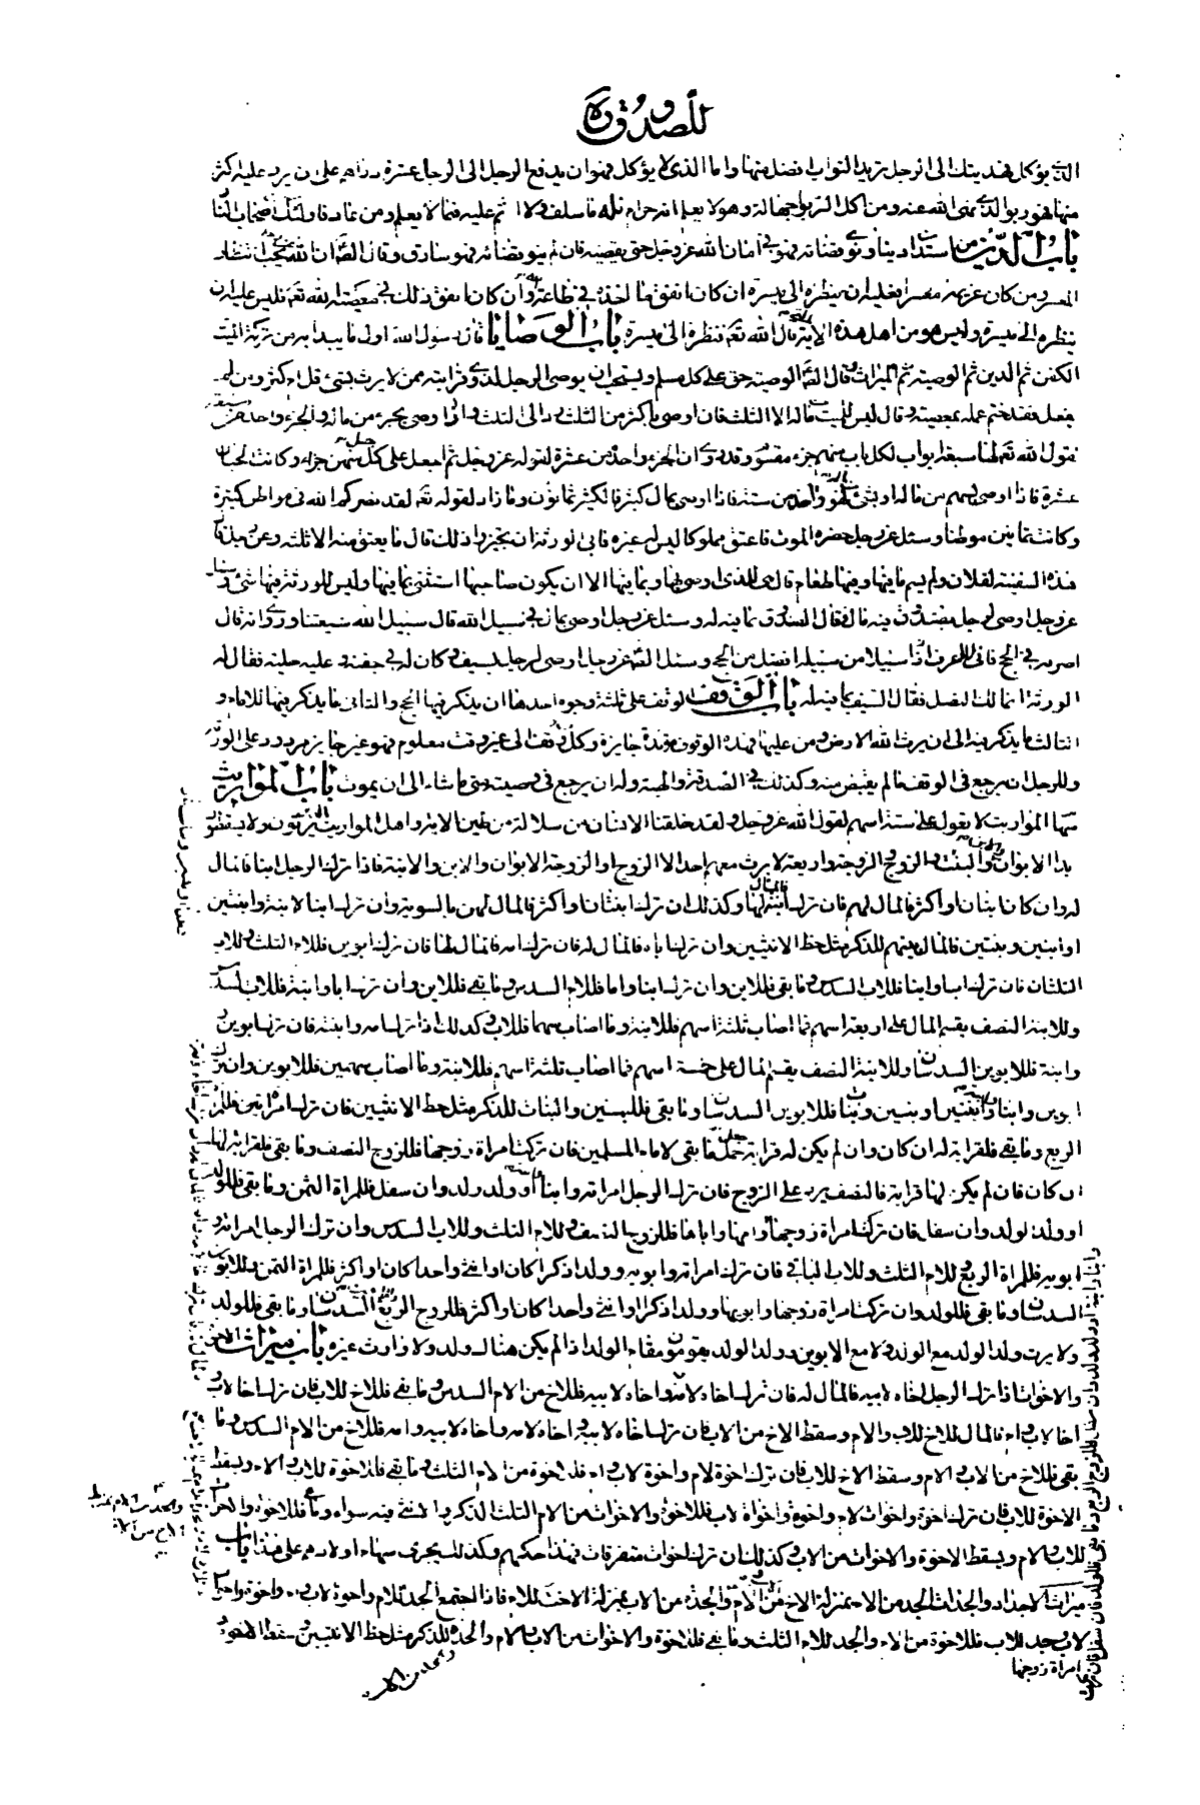 للصدوق ره
الذي يؤكل فهديتك الى الرجل تريد الثواب افضل منها واما الذي لا يؤكل فهو ان يدفع الرجل الى الرجل عشرة دراهم على ان يرد عليه اكثر
منها فهو ربوا الذي نهى الله عنه ومن اكل الربوا بجهالة وهو لا يعلم انه حرام فله ما سلف ولا اثم عليه فيما لا يعلم ومن عاد فاولئك اصحاب النار
باب الدين من استدان دينا ونوى قضائه فهو في امان الله عز وجل حتى يقضيه فان لم ينو قضائه فهو سارق وقال الص ان الله يحب انتظار
المعسر ومن كان غريمه معسرا فعليه ان ينظره الى ميسرة ان كان انفق ما اخذه في طاعة وان كان انفق ذلك في معصية الله تع فليس عليه ان
ينظره الى ميسرة وليس هو من اهل هذه الآية قال الله تع فنظرة الى ميسرة باب الوصايا قال رسول الله اول ما يبدا به من تركة الميت
الكفن ثم الدين ثم الوصية ثم الميراث وقال الص الوصية حق على كل مسلم ويستحب ان يوصي الرجل لذوي قرابته ممن لا يرث بشيء قل او كثر ومن لم
يفعل فقد ختم عمله بمعصية وقال ليس للميت من ماله الا الثلث فان اوصى باكثر من الثلث رد الى الثلث واذا اوصى بجزء من ماله فالجزء واحد من سبعة
لقول الله تع لها سبعة ابواب لكل باب منهم جزء مقسوم وقد روي ان الجزء واحد من عشرة لقوله عز وجل ثم اجعل على كل جبل منهن جزءا وكانت الجبال
عشرة فاذا اوصى بسهم من ماله او بشيء فهو واحد من ستة فاذا اوصى بمال كثير فالكثير ثمانون وما زاد لقوله تع لقد نصركم الله في مواطن كثيرة
وكانت ثمانين موطنا وسئل عن رجل حضره الموت فاعتق مملوكا ليس له غيره فابى الورثة ان يجيزوا ذلك قال ما يعتق منه الا ثلثه وعن رجل قال
هذه السفينة لفلان ولم يسم ما فيها وفيها طعام قال هي للذي اوصى بها وبما فيها الا ان يكون صاحبها استثنى بما فيها وليس للورثة فيها شيء وسئل
عن رجل اوصى لرجل بصندوق فيه مال فقال الصندوق بما فيه له وسئل عن رجل اوصى بمال في سبيل الله قال سبيل الله شيعتنا وروي انه قال
اصرفه في الحج فاني لا اعرف سبيلا من سبيله افضل من الحج وسئل الص عن رجل اوصى لرجل بسيف وكان له في جفنه وعليه حلية فقال له
الورثة انما لك النصل فقال السيف بما فيه له باب الوقف الوقف على ثلثة وجوه احدها ان يذكر فيها الحج والثاني ما يذكر فيها للامام و
الثالث ما يذكر فيه الى ان يرث الله الارض ومن عليها فهذه الوقوف مؤبدة جايزة وكل وقف الى غير وقت معلوم فهو غير جايز مردود على الورثة
وللرجل ان يرجع في الوقف ما لم يقبض منه وكذلك في الصدقة والهبة وله ان يرجع في وصيته متى ما شاء الى ان يموت باب المواريث
سهام المواريث لا يعول على ستة اسهم لقول الله عز وجل ولقد خلقنا الانسان من سلالة من طين الآية واهل المواريث الذين يرثون ولا يسقطون
ابدا الابوان والابن والبنت والزوج والزوجة واربعة لا يرث معهم احد الا الزوج او الزوجة الابوان والابن والابنة فاذا ترك الرجل ابنا فالمال
له وان كانا ابنان او اكثر فالمال لهم فان ترك ابنة فالمال لها وكذلك ان ترك ابنتان او اكثر فالمال لهن بالسوية وان ترك ابنا وابنة او ابنتين
او ابنين وبنتين فالمال بينهم للذكر مثل حظ الانثيين وان ترك ابا فالمال له فان ترك امه فالمال لها فان ترك ابوين فللام الثلث وللاب
الثلثان فان ترك ابا وابنا فللاب السدس وما بقي فللابن وان ترك ابنا واما فللام السدس وما بقي فللابن وان ترك ابا وابنة فللاب السدس
وللابنة النصف يقسم المال على اربعة اسهم فما اصاب ثلثة اسهم فللابنة وما اصاب سهما فللاب وكذلك اذا ترك امه وابنته فان ترك ابوين و
وابنة فللابوين السدسان وللابنة النصف يقسم المال على خمسة اسهم فما اصاب ثلثة اسهم فللابنة وما اصاب سهمين فللابوين وان ترك
ابوين وابنا وابنة او ابنتين او بنين وبنات فللابوين السدسان وما بقي فللبنين والبنات للذكر مثل حظ الانثيين فان ترك امراة فللمراة
الربع وما بقي فلقرابة له ان كان وان لم يكن له قرابة جعل ما بقي لامام المسلمين فان تركت امراة زوجها فللزوج النصف وما بقي فلقرابة لها
ان كان فان لم يكن لها قرابة فالنصف يرد على الزوج فان ترك الرجل امراته وابنا او ولد ولد وان سفل فللمراة الثمن وما بقي فللولد
او ولد الولد وان سفل فان تركت امراة زوجها وامها واباها فللزوج النصف وللام الثلث وللاب السدس وان ترك الرجل امراته و
ابويه فللمراة الربع وللام الثلث وللاب الباقي فان ترك امراته وابويه وولدا ذكرا كان او انثى واحدا كان او اكثر فللمراة الثمن وللابوين
السدسان وما بقي فللولد وان تركت امراة زوجها وابويها وولدا ذكرا او انثى واحدا كان او اكثر فللزوج الربع وللابوين السدسان وما بقي فللولد
ولا يرث ولد الولد مع الولد ولا مع الابوين وولد الولد يقومون مقام الولد اذا لم يكن هناك ولد ولا وارث غيره باب ميراث الاخوة
والاخوات اذا ترك الرجل اخاه لابيه فالمال له فان ترك اخاه لامه واخاه لابيه فللاخ من الام السدس وما بقي فللاخ للاب فان ترك اخا لاب و
اخا لاب وام فالمال للاخ للاب والام وسقط الاخ من الاب فان ترك اخاه لابيه واخاه لامه واخاه لابيه وامه فللاخ من الام السدس وما
بقي فللاخ من الاب والام وسقط الاخ للاب فان ترك اخوة لام واخوة لاب وام فللاخوة من الام الثلث وما بقي فللاخوة للاب والام وسقط
الاخوة للاب فان ترك اخوة واخوات لام واخوة واخوات لاب فللاخوة والاخوات من الام الثلث الذكر والانثى فيه سواء وما بقي فللاخوة والاخوات
للاب والام ويسقط الاخوة والاخوات من الاب وكذلك ان ترك اخوات متفرقات فهذا حكمهم وكذلك يجرى سهام اولادهم على هذا باب
ميراث الاجداد والجدات الجد من الام بمنزلة الاخ من الام والجدة من الاب بمنزلة الاخت للاب فاذا اجتمع الجد للام واخوة لاب وام واخوة واخوات
لاب وجد للاب فللاخوة من الام والجد للام الثلث وما بقي فللاخوة والاخوات من الاب والام والجد للذكر مثل حظ الانثيين وسقط الاخوة
امراة زوجها